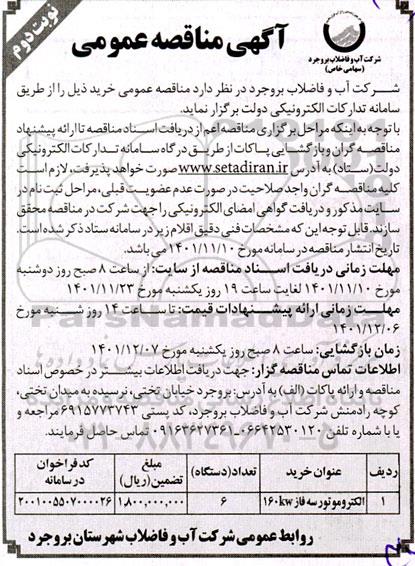 نوبت دوم
آگهی مناقصه عمومی
شرکت آب و فاضلاب بروجرد
(سهامی خاص)
شرکت آب و فاضلاب بروجرد در نظر دارد مناقصه عمومی خرید ذیل را از طریق
سامانه تدارکات الکترونیکی دولت برگزار نماید.
با توجه به اینکه مراحل برگزاری مناقصه اعم از دریافت اسناد مناقصه تا ارائه پیشنهاد
مناقصه گران و بازگشایی پاکات از طریق درگاه سامانه تدارکات الکترونیکی
دولت(ستاد) به آدرس www.setadiran.ir صورت خواهد پذیرفت، لازم است
کلیه مناقصه گران واجد صلاحیت در صورت عدم عضویت قبلی، مراحل ثبت نام در
سایت مذکور و دریافت گواهی امضای الکترونیکی را جهت شرکت در مناقصه محقق
سازند. قابل توجه این که مشخصات فنی دقیق اقلام زیر در سامانه ستاد ذکر شده است.
تاریخ انتشار مناقصه در سامانه مورخ ۱۴۰۱/۱۱/۱۰ می باشد.
مهلت زمانی دریافت اسناد مناقصه از سایت: از ساعت ۸ صبح روز دوشنبه
مورخ ۱۴۰۱/۱۱/۱۰ لغایت ساعت ۱۹ روز یکشنبه مورخ ۱۴۰۱/۱۱/۲۳
مهلت زمانی ارائه پیشنهادات قیمت: تا ساعت ۱۴ روز شنبه مورخ
۱۴۰۱/۱۲/۰۶
زمان بازگشایی: ساعت ۸ صبح روز یکشنبه مورخ ۱۴۰۱/۱۲/۰۷
اطلاعات تماس مناقصه گزار: جهت دریافت اطلاعات بیشتر در خصوص اسناد
مناقصه و ارائه پاکات (الف) به آدرس: بروجرد خیابان تختی، نرسیده به میدان تختی،
کوچه رادمنش شرکت آب و فاضلاب بروجرد، کد پستی ۶۹۱۵۷۷۳۷۴۳ مراجعه و
یا با شماره تلفن ۰۶۶۴۲۵۳۰۱۲۰-۰۹۱۶۳۶۲۷۳۶۱ تماس حاصل فرمایند.
ردیف عنوان خرید تعداد(دستگاه) مبلغ تضمین(ریال) کد فراخوان در سامانه
۱ الکتروموتور سه فاز ۱۶۰kw ۶ ۱,۸۰۰,۰۰۰,۰۰۰ ۲۰۰۱۰۰۵۵۰۷۰۰۰۰۲۶
روابط عمومی شرکت آب و فاضلاب شهرستان بروجرد